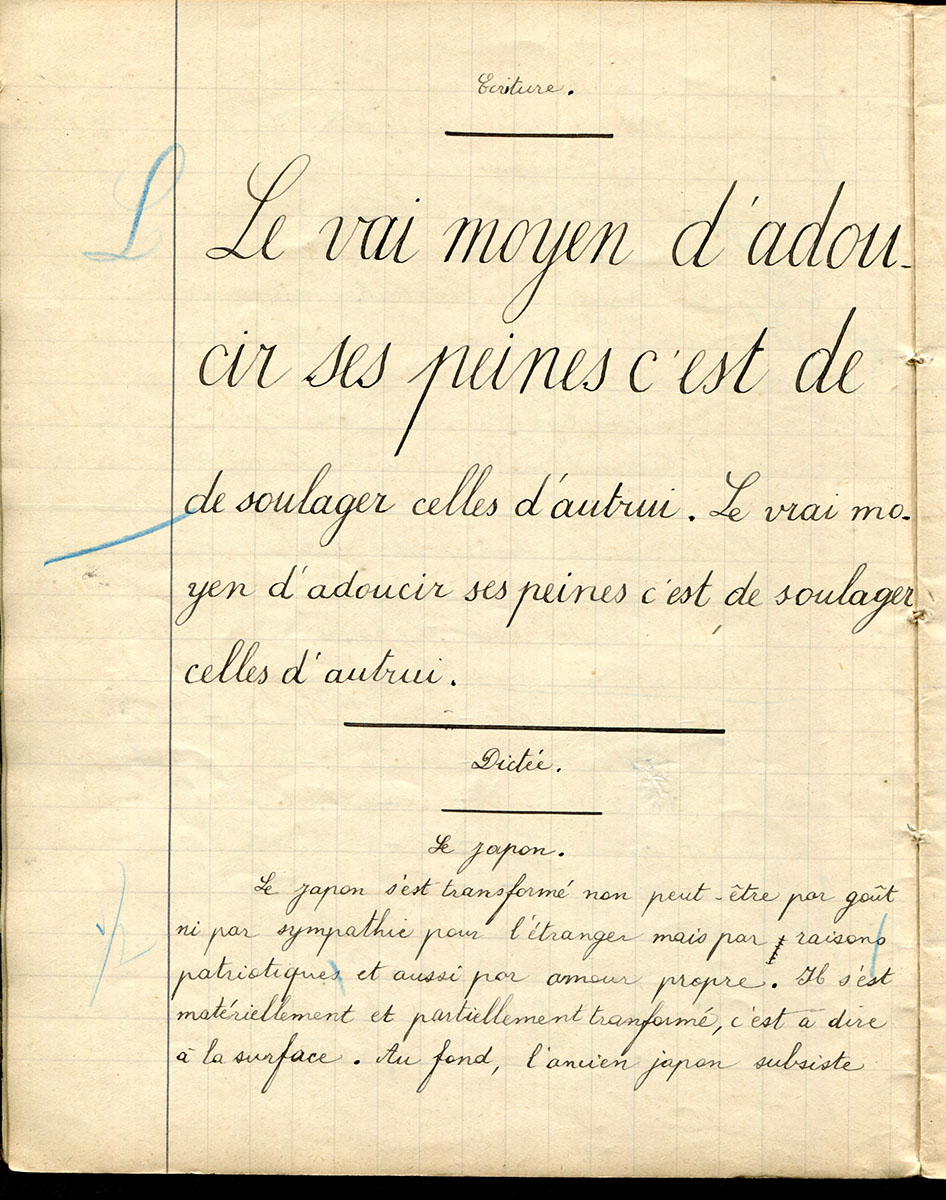 Ecriture.
L
Le vai moyen d'adou-
cir ses peines c'est de
de soulager celles d'autrui. Le vrai mo-
yen d'adoucir ses peines c'est de soulager
celles d'autrui.
Dictée.
Le japon.
Le japon s'est transformé non peut-être par goût
ni par sympathie pour l'étranger mais par raisons
patriotiques et aussi par amour propre. Il s'est
matériellement et partiellement tranformé, c'est a dire
à la surface. Au fond, l'ancien japon subsiste